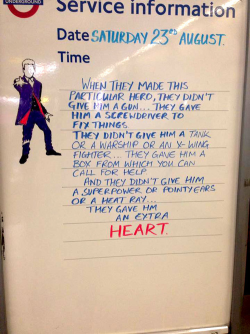 UNDERGROUND
Service information
Date SATURDAY 23RD AUGUST.
Time
WHEN THEY MADE THIS
PARTICULAR HERO, THEY DIDN'T
GIVE HIM A GUN... THEY GAVE
HIM A SCREWDRIVER TO
FIX THINGS
THEY DIDN'T GIVE HIM A TANK
OR A WARSHIP OR AN X-WING
FIGHTER... THEY GAVE HIM A
BOX FROM WHICH YOU CAN
CALL FOR HELP
AND THEY DIDN'T GIVE HIM
A SUPERPOWER OR POINTY EARS
OR A HEAT RAY...
THEY GAVE HIM
AN EXTRA
HEART.